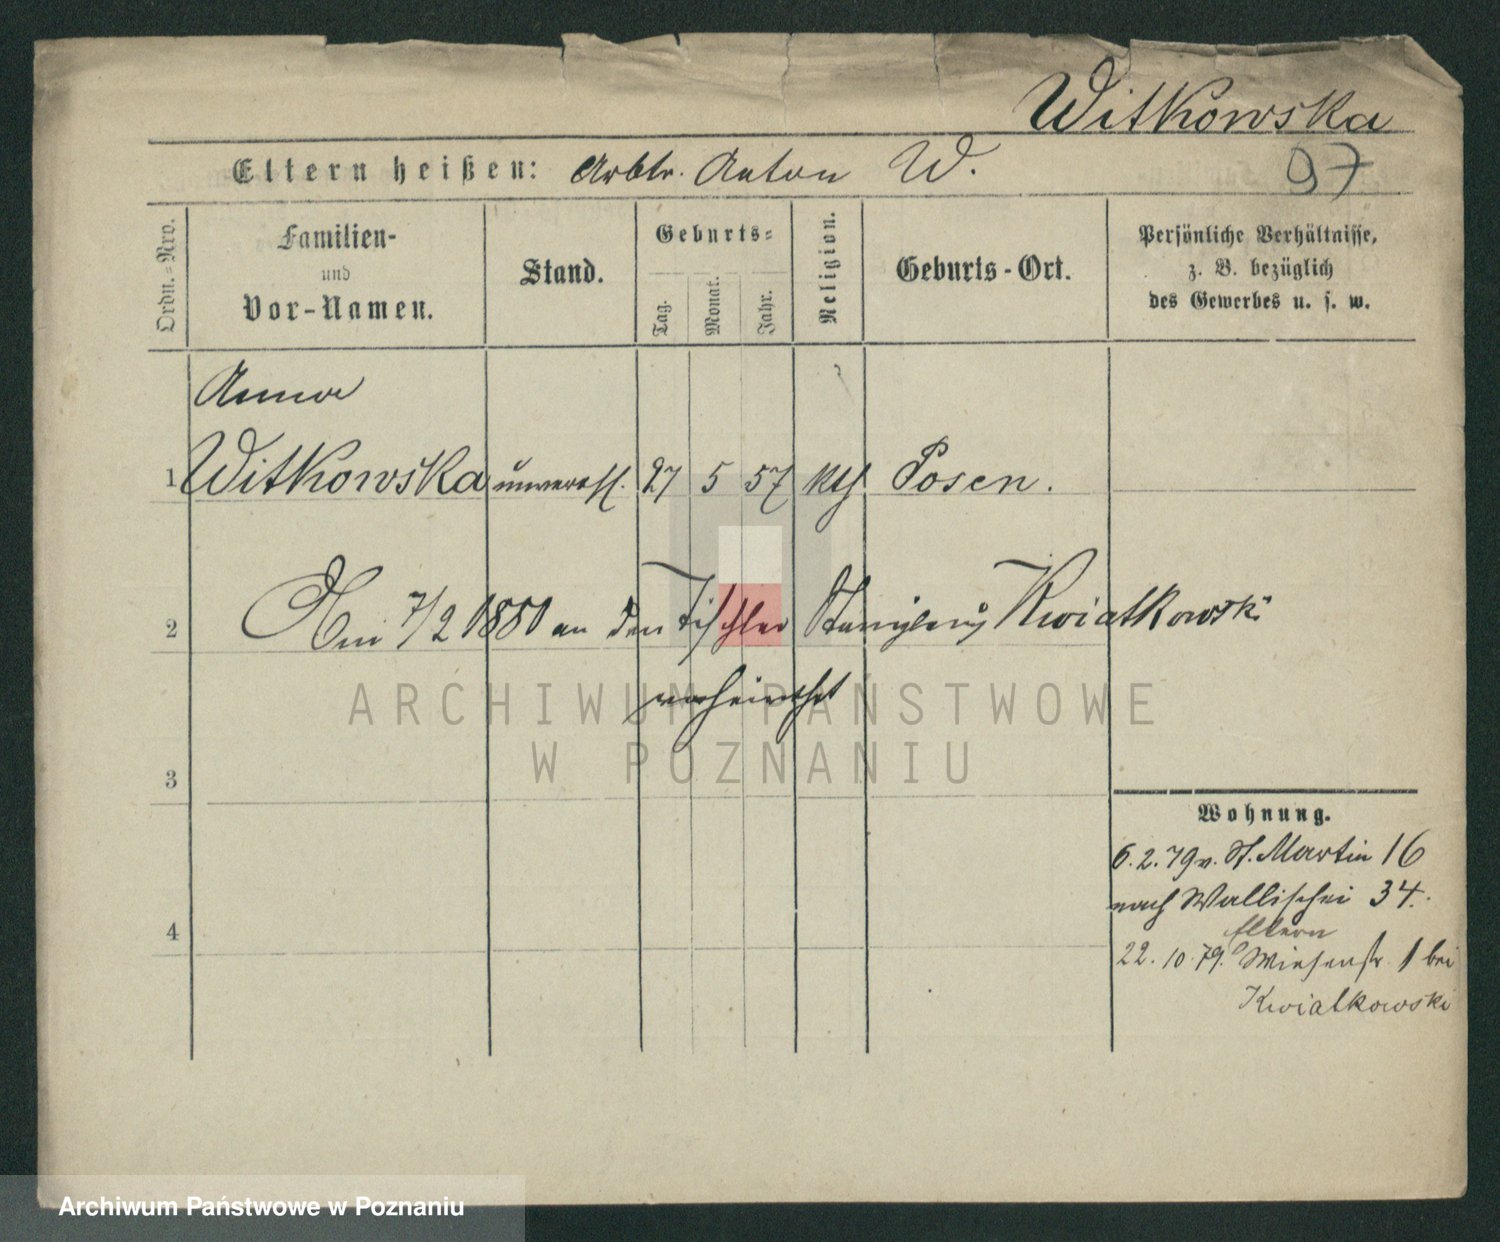 Witkowska
97
Eltern heißen: Arbtr. Anton W.
Ordn.=Nro.
Familien-
und
Vor-Namen.
Stand.
Geburts=
Tag.
Monat.
Jahr.
Religion.
Geburts-Ort.
Persönliche Verhältnisse,
z. B. bezüglich
des Gewerbes u. s. w.
Anna
1 Witkowska unverehl. 27 5 57 kth Posen.
2 Am 7/2 1880 an den Tischler Stanislaus Kwiatkowski
verheirathet
ARCHIWUM PAŃSTWOWE
W POZNANIU
3
Wohnung.
6.2.79 v. St. Martin 16
nach Wallischei 34.
4
Eltern
22.10.79. Wiesenstr. 1 bei
Kwiatkowski
Archiwum Państwowe w Poznaniu